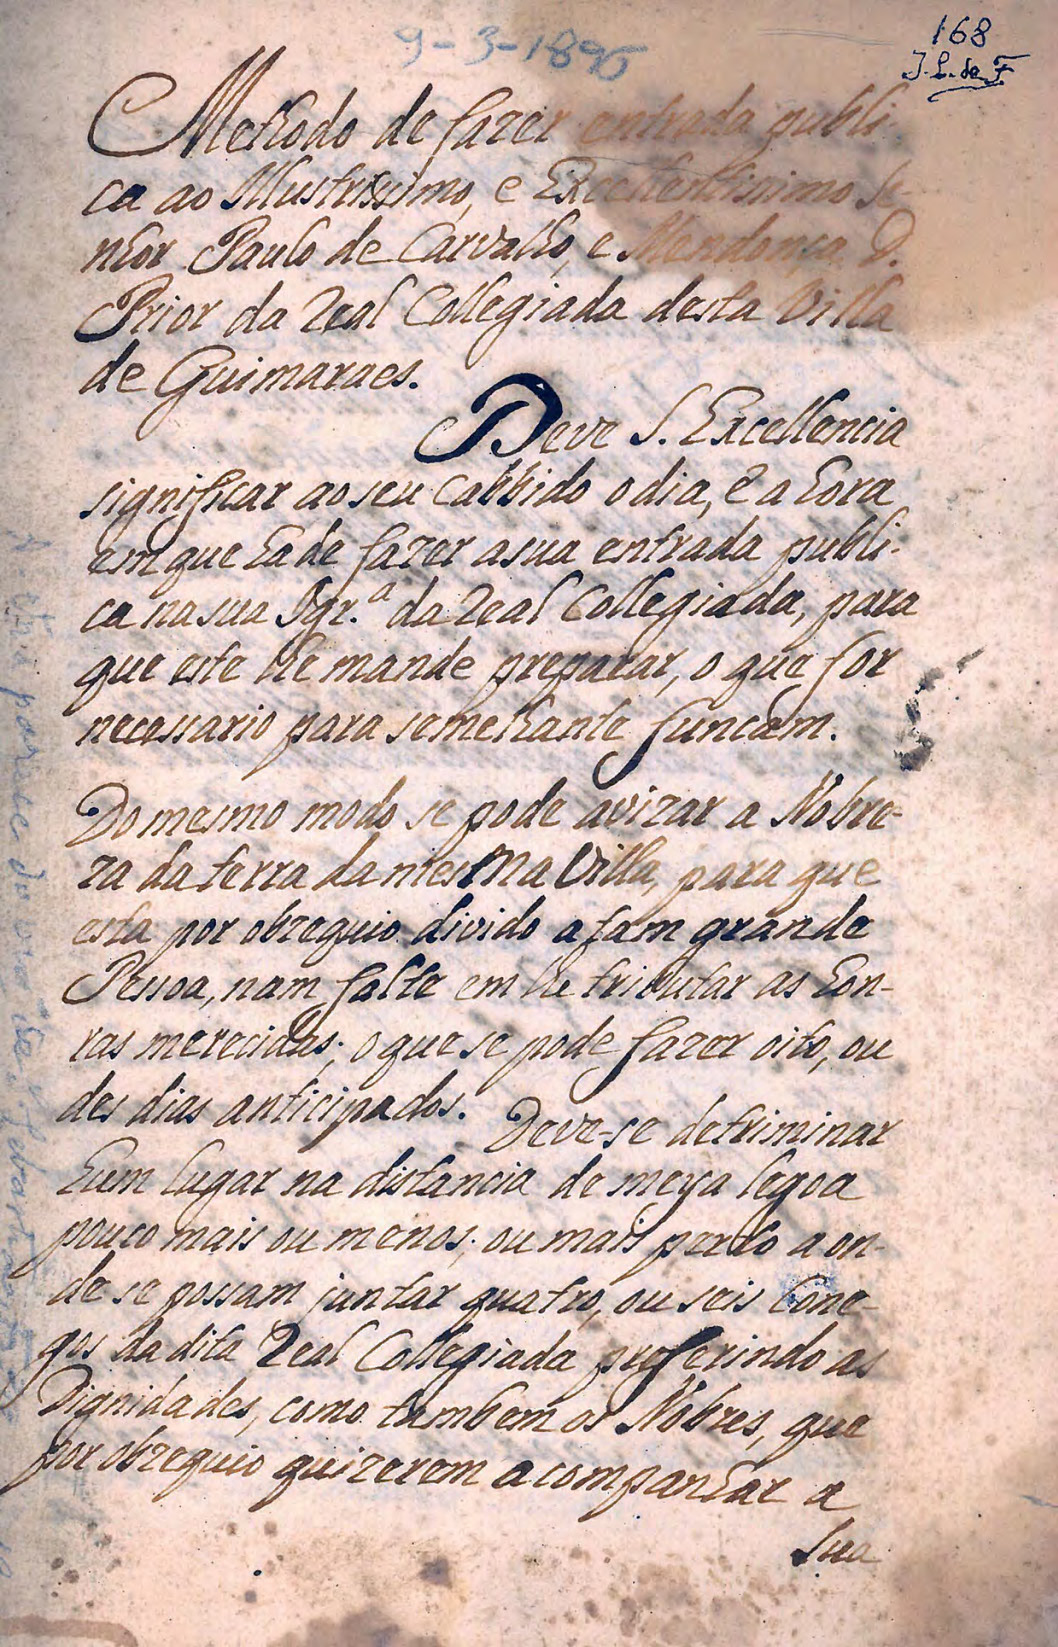 9-3-1896
168
J. L. de F.
Methodo de fazer entrada publi-
ca ao Illustrissimo, e Excellentissimo Se
nhor Paulo de Carvalho, e Mendonça D.
Prior da Real Collegiada desta Villa
de Guimaraes.
Deve S. Excellencia
significar ao seu Cabbido o dia, e a hora
em que ha de fazer a sua entrada publi-
ca na sua Igr.ª da Real Collegiada, para
que este lhe mande preparar, o que for
necessario para semelhante funcam.
Do mesmo modo se pode avizar a Nobre-
za da terra da mesma Villa, para que
esta por obzequio divido a tam grande
Pessoa, nam falte em lhe tributar as hon-
ras merecidas; o que se pode fazer oito, ou
des dias anticipados.
Deve-se detriminar
hum lugar na distancia de meya legoa
pouco mais ou menos; ou mais perto a on-
de se possam juntar quatro, ou seis Cone-
gos da dita Real Collegiada preferindo as
Dignidades, como tambem os Nobres, que
por obzequio quizerem acompanhar a
sua